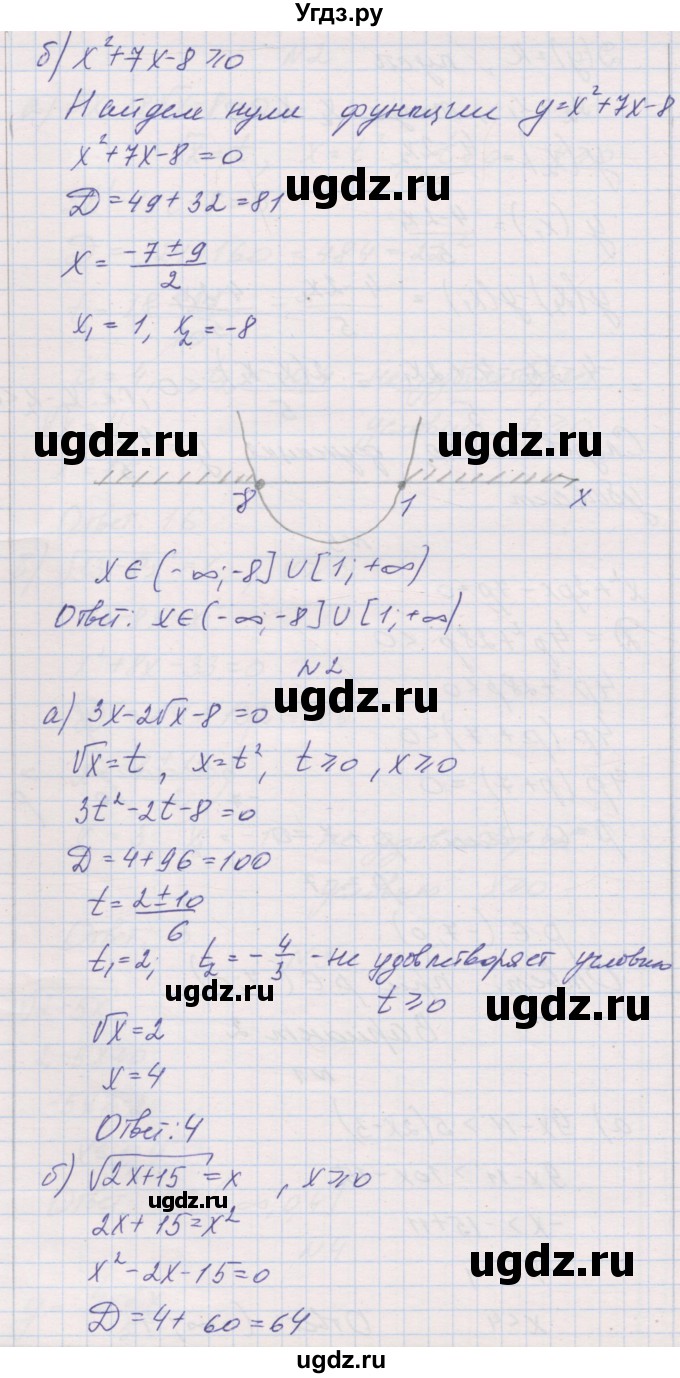 Угдз.ру
б) x²+7x-8≥0
Найдем нули функции y=x²+7x-8
x²+7x-8=0
ugdz.ru
D=49+32=81
x = (-7±9)/2
ugdz.ru
x₁=1; x₂=-8
ugdz.ru ugdz.ru
-8 1 x
x∈(-∞;-8]∪[1;+∞)
Ответ: x∈(-∞;-8]∪[1;+∞)
N2
ugdz.ru
а) 3x-2√x-8=0
√x=t, x=t², t≥0, x≥0
3t²-2t-8=0
D=4+96=100
ugdz.ru
t = (2±10)/6
t₁=2; t₂=-4/3 - не удовлетворяет условию
ugdz.ru
t≥0
ugdz.ru
√x=2
x=4
Ответ: 4
б) √(2x+15)=x, x≥0
ugdz.ru
2x+15=x²
ugdz.ru
x²-2x-15=0
D=4+60=64
ugdz.ru